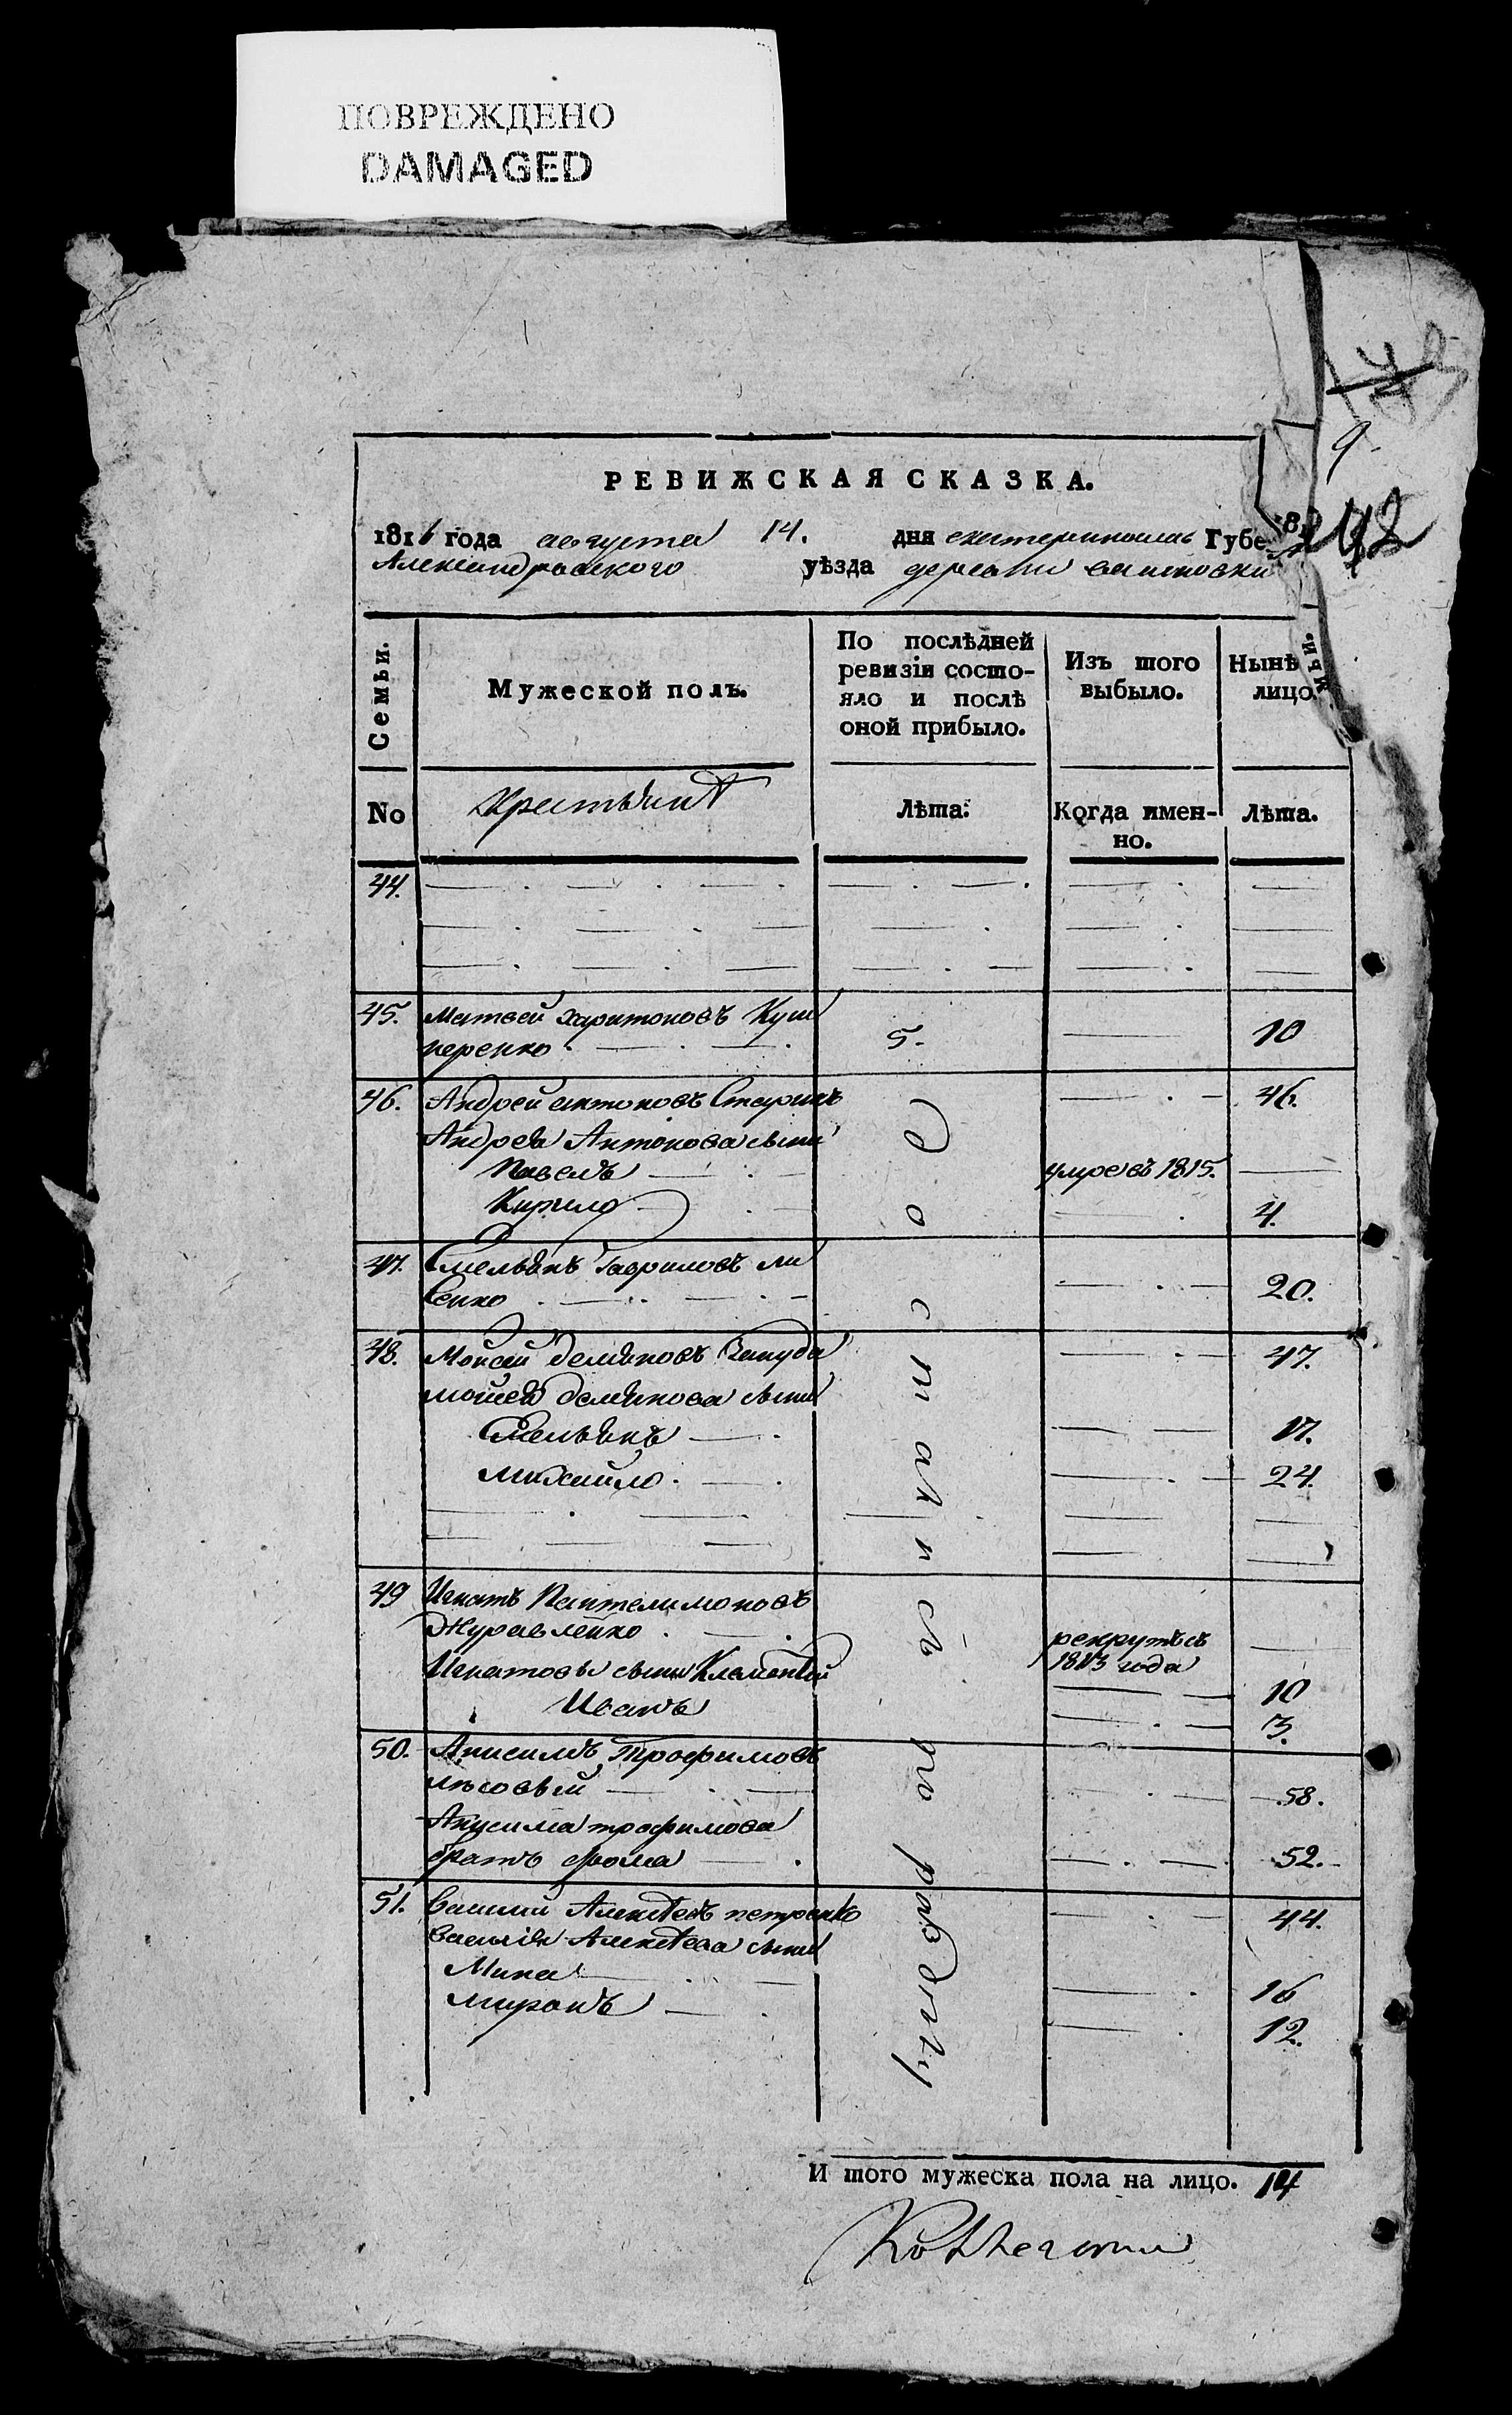 ПОВРЕЖДЕНО
DAMAGED
9
242
РЕВИЖСКАЯ СКАЗКА.
1816 года августа 14. дня екатеринослав Губе
Александровского уѣзда деревни
Семьи.
Мужеской полъ.
По послѣдней ревизіи состояло и послѣ оной прибыло.
Изъ того выбыло.
Нынѣ лицо.
No
Крестьянъ
Лѣта.
Когда именно.
Лѣта.
44.
45. Матвей харитоновъ Куш 5. 10
неренко
46. Андрей антоновъ Старикъ 46.
Андрея Антонова сыны
Павелъ умре въ 1815.
Кирило 4.
47. Емельянъ Гавриловъ ли
сенко 20.
48. Мойсей демяновъ 47.
мойсея демянова сыны
Емельянъ 17.
михайло 24.
49 Игнатъ Пантелимоновъ
Журавленко рекрутъ съ 1813 года
Игнатовы сыны Клементий 10
Иванъ 3.
50. Анисимъ Трофимовъ
лѣсовый 58.
Анисима трофимова
братъ фома 52.
51. василий Алексѣевъ петренко 44.
василія Алексѣева сыны
Мина 16
миронъ 12.
по
И того мужеска пола на лицо. 14